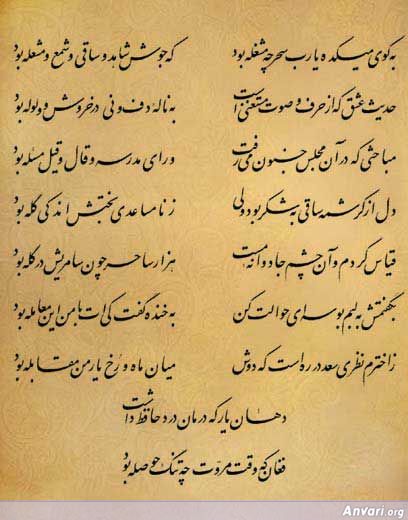 به کوی میکده یا رب سحر چه مشغله بود که جوش شاهد و ساقی و شمع و مشعله بود
حدیث عشق که از حرف و صوت مستغنی است به ناله دف و نی در خروش و ولوله بود
مباحثی که در آن مجلس جنون می رفت ورای مدرسه و قال و قیل مسئله بود
دل از کرشمه ساقی به شکر بود ولی ز نامساعدی بختش اندکی گله بود
قیاس کردم و آن چشم جادوانه مست هزار ساحر چون سامریش در گله بود
بگفتمش به لبم بوسه ای حوالت کن به خنده گفت کی ات با من این معامله بود
ز اخترم نظری سعد در ره است که دوش میان ماه و رخ یار من مقابله بود
دهان یار که درمان درد حافظ داشت
فغان که وقت مروت چه تنگ حوصله بود
Anvari.org